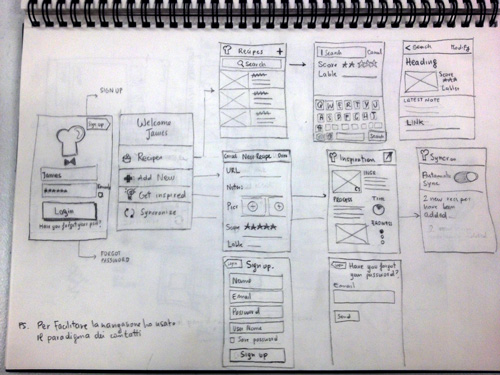 SIGN UP
Sign up
James
*****
Login
Have you forgot your pwd?
FORGOT
PASSWORD
Welcome
James
Recipes
Add New
Get inspired
Syncronise
Recipes +
Search
Search Cancel
Score
Lable
Q W E R T Y U
Search
Search Modify
Heading
Score
Lables
LATEST NOTE
LINK
Cancel New Recipe Done
URL
Notes
Pics
Score
Lable
Inspiration
INGR
PROCESS
TIME
Syncron
Automatic
Sync
2 new recipes
have been
added..
Sign up.
Name
Email
Password
User Name
Save password
Sign up
Have you forgot
your password?
Email
Send
PS. Per Facilitare la navigazione ho usato
il paradigma dei contatti